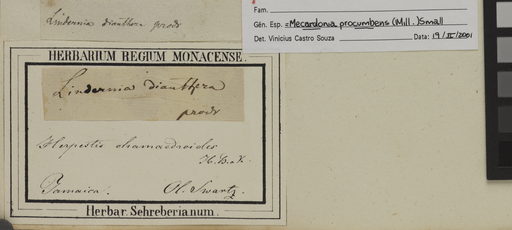 Lindernia dianthera prodr
Fam.
Gên. Esp. =Mecardonia procumbens (Mill.) Small
Det. Vinicius Castro Souza Data: 19/II/2001
HERBARIUM REGIUM MONACENSE.
Lindernia dianthera
prodr
Herpestis chamaedroides
H.B.K.
Jamaica. Ol. Swartz.
Herbar. Schreberianum.